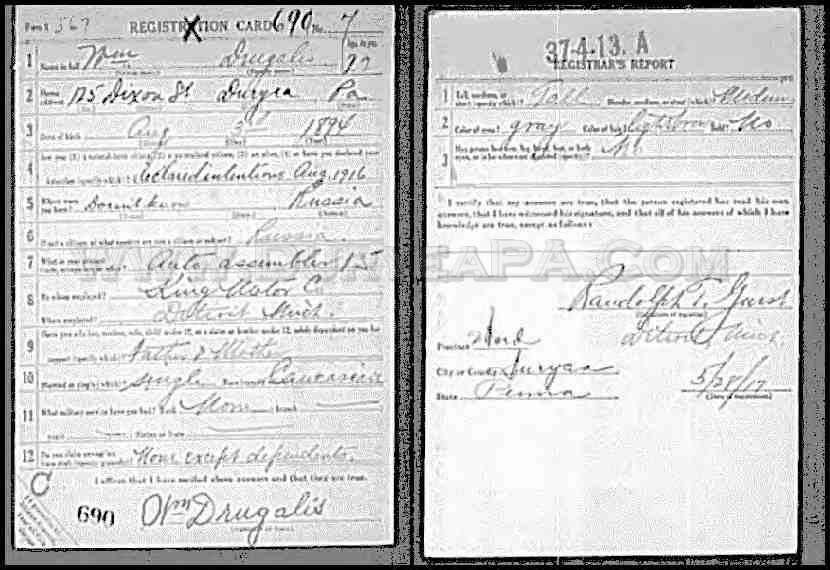 Form 1 567 REGISTRATION CARD 690 No. 7
X
Age, in yrs.
1 Name in full Wm Drugalis 22
2 Home address 125 Dixon St Duryea Pa
3 Date of birth Aug 3rd 1894
4 Are you (1) a natural-born citizen, (2) a naturalized citizen, (3) an alien, (4) or have you declared your
intention (specify which)? declared intentions Aug. 1916
5 Where were you born? Don't know Russia
6 If not a citizen, of what country are you a citizen or subject? Russia.
7 What is your present trade, occupation, or office? Auto assembler 15
8 By whom employed? King Motor C
Where employed? Detroit Mich.
9 Have you a father, mother, wife, child under 12, or a sister or brother under 12, solely dependent on you for
support (specify which)? Father & Mother
10 Married or single (which)? Single Race (specify which)? Caucasian
11 What military service have you had? Rank None branch
years Nation or State
12 Do you claim exemption from draft (specify grounds)? None except dependents.
I affirm that I have verified above answers and that they are true.
C
690 Wm Drugalis
37-4-13. A
REGISTRAR'S REPORT
1 Tall, medium, or short (specify which)? Tall Slender, medium, or stout (which)? Medium
2 Color of eyes? gray Color of hair? light brown Bald? No
3 Has person lost arm, leg, hand, foot, or both eyes, or is he otherwise disabled (specify)? No
I certify that my answers are true, that the person registered has read his own
answers, that I have witnessed his signature, and that all of his answers of which I have
knowledge are true, except as follows:
Randolph T.
(Signature of registrar)
Detroit Mich.
Precinct
City or County Duryea
State Penna 5/28/17
(Date of registration)